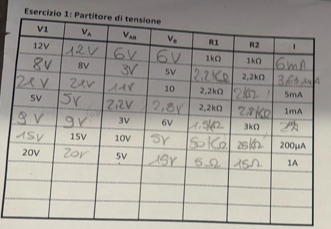 Esercizio 1: Partitore di tensione
V1 V_A V_AB V_B R1 R2 I
12V 12V 6V 6V 1kΩ 1kΩ 6mA
8V 8V 3V 5V 2,2kΩ
21V 21V 11V 10 2,2kΩ 2kΩ 5mA
5V 5V 2,2V 2,8V 2,2kΩ 1mA
9V 9V 3V 6V 1,5kΩ 3kΩ
15V 15V 10V 5V 50kΩ 25kΩ 200µA
20V 20V 5V 15V 5Ω 15Ω 1A